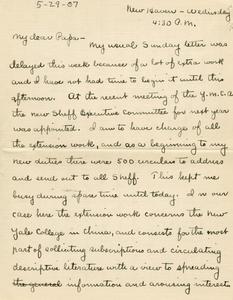 5-29-07
New Haven - Wednesday
4:30 P.M.
My dear Papa-
My usual Sunday letter was
delayed this week because of a lot of extra work
and I have not had time to begin it until this
afternoon. At the recent meeting of the Y.M.C.A.
the new Sheff Executive Committee for next year
was appointed. I am to have charge of all
the extension work, and as a beginning to my
new duties there were 500 circulars to address
and send out to all Sheff. This kept me
busy during spare time until today. In our
case here the extension work concerns the new
Yale College in China, and consists for the most
part of solliciting subscriptions and circulating
descriptive literature with a view to spreading
the general information and arousing interest